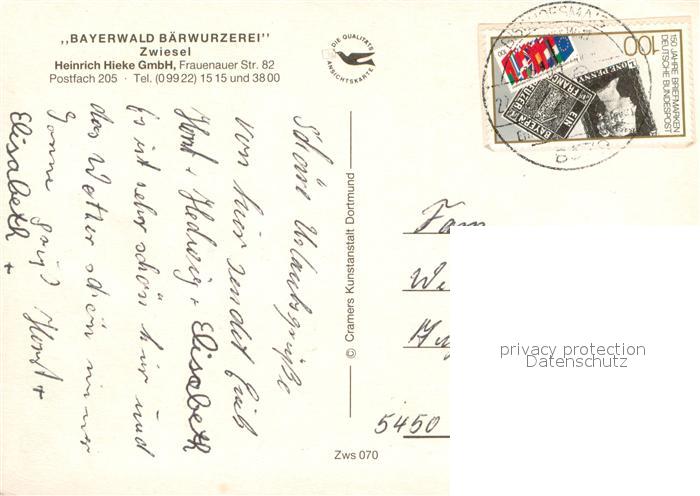 ,,BAYERWALD BÄRWURZEREI"
Zwiesel
Heinrich Hieke GmbH, Frauenauer Str. 82
Postfach 205 · Tel. (0 99 22) 15 15 und 38 00
DIE QUALITÄTS
ANSICHTSKARTE
100
150 JAHRE BRIEFMARKEN
DEUTSCHE BUNDESPOST
ONE PENNY
EIN
FRANCO
Schöne Urlaubsgrüße
von hier sendet Euch
Horst + Hedwig + Elisabeth
Es ist sehr schön hier und
das Wetter schön immer
Sonne Horst +
Elisabeth +
© Cramers Kunstanstalt Dortmund
Fam
We
5450
Zws 070
privacy protection
Datenschutz